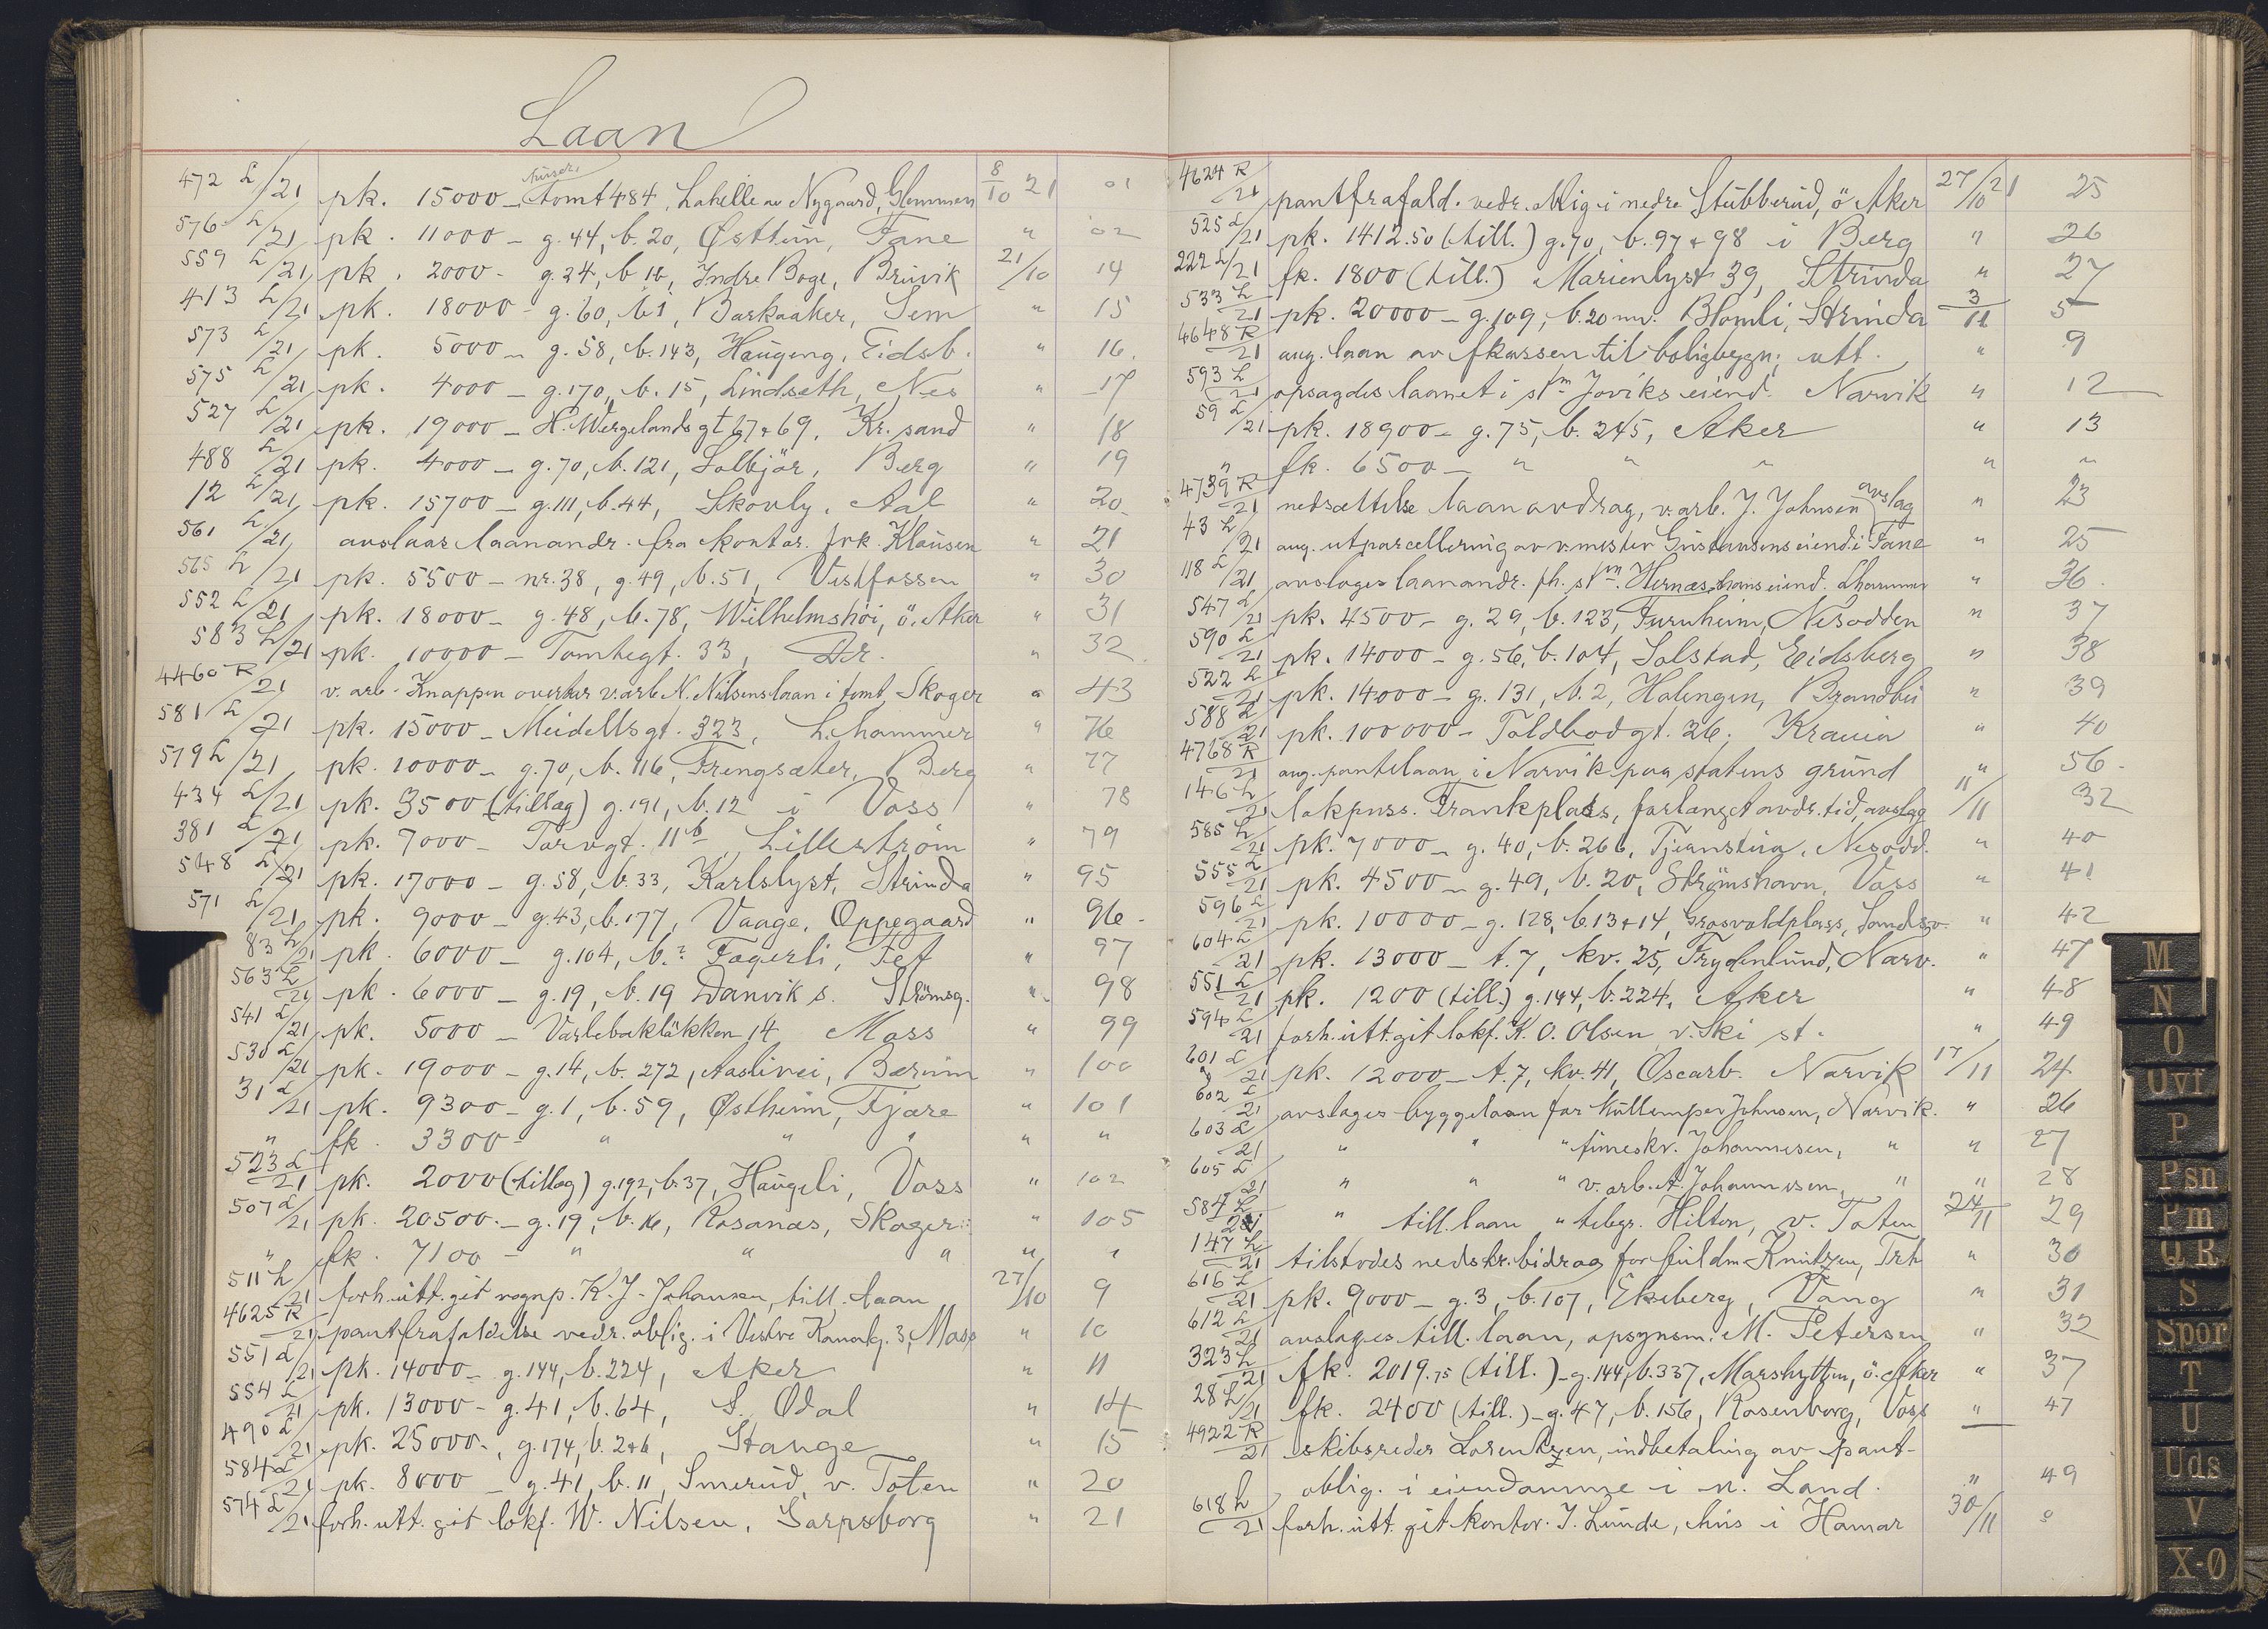 Laan
472 L/21 pk. 15000 - tomt 484, Lahelle av Nygaard, Glemmen 8/10 21 01
576 L/21 pk. 11000 - g. 44, b. 20, Østtun, Fane " 02
559 L/21 pk. 2000 - g. 24, b. 16, Indre Boge, Bruvik 21/10 14
413 L/21 pk. 18000 - g. 60, b. 1, Barkaaker, Sem " 15
573 L/21 pk. 5000 - g. 58, b. 143, Haugeng, Eidsb. " 16.
575 L/21 pk. 4000 - g. 170, b. 15, Lindseth, Nes " 17
527 L/21 pk. 19000 - H. Wergelands gt 67 + 69, Kr. sand " 18
488 L/21 pk. 4000 - g. 70, b. 121, Solbjör, Berg " 19
12 L/21 pk. 15700 - g. 111, b. 44, Skovly, Aal " 20
561 L/21 avslaas laanandr. fra kontor. frk. Klausen " 21
565 L/21 pk. 5500 - nr. 38, g. 49, b. 51, Vestfossen " 30
552 L/21 pk. 18000 - g. 48, b. 78, Wilhelmshöi, ö. Aker " 31
583 L/21 pk. 10000 - Tomtegt. 33, Dr. " 32
4460 R/21 v. arb. Knappen overtar v. arb. N. Nilsens laan i tomt, Skoger " 43
581 L/21 pk. 15000 - Meidellsgt. 323, L.hammer " 76
579 L/21 pk. 10000 - g. 70, b. 116, Frengsæter, Berg " 77
434 L/21 pk. 3500 (tillæg) g. 191, b. 12 i Voss " 78
381 L/21 pk. 7000 - Torvgt. 11b Lilleström " 79
548 L/21 pk. 17000 - g. 58, b. 33, Karlslyst, Strinda " 95
571 L/21 pk. 9000 - g. 43, b. 177, Vaage, Oppegaard " 96 -
83 L/21 pk. 6000 - g. 104, b. 2 Fagerli, Tef " 97
563 L/21 pk. 6000 - g. 19, b. 19 Danvik s. Strömsg. " 98
541 L/21 pk. 5000 - Varlebaklökken 14 Moss " 99
530 L/21 pk. 19000 - g. 14, b. 272, Aaslivei, Bærum " 100
31 L/21 pk. 9300 - g. 1, b. 59, Østheim, Fjære " 101
" fk. 3300 - " " " " "
523 L/21 pk. 2000 (tillæg) g. 192, b. 37, Haugeli, Voss " 102
507 L/21 pk. 20500. - g. 19, b. 16, Rosanæs, Skoger " 105
" fk. 7100 - " " " " "
511 L/21 forh. utt. git vognp. K. J. Johansen, till. laan 27/10 9
4625 R/21 pantfrafaldelse vedr. oblig. i Vestre Kanalg. 3, Moss " 10
551 L/21 pk. 14000 - g. 144, b. 224, Aker " 11
554 L/21 pk. 13000 - g. 41, b. 64, S. Odal " 14
490 L/21 pk. 25000 -, g. 174, b. 2+6, Stange " 15
584 L/21 pk. 8000 - g. 41, b. 11, Smerud, v. Toten " 20
574 L/21 forh. utt. git lokf. W. Nilsen, Sarpsborg " 21
4624 R/21 pantfrafald. vedr. Mig i nedre Stubberud, ö Aker 27/10 21 25
525 L/21 pk. 1412.50 (till.) g. 70, b. 97 + 98 i Berg " 26
222 L/21 fk. 1800 (till.) Marienlyst 39, Strinda " 27
533 L/21 pk. 20000 - g. 109, b. 20 mv. Blomli, Strinda 3/11 5
4648 R/21 ang. laan av fkassen til boligbygn. utt. " 9
593 L/21 opsagdes laanet i stm Joviks eiend. Narvik " 12
59 L/21 pk. 18900 - g. 75, b. 245, Aker " 13
" fk. 6500 - " " " " "
4739 R/21 nedsættelse laanavdrag, v. arb. J. Johnsen avslag " 23
43 L/21 ang. utparcellering av v.mester Gustausens eiend. i Fane " 25
118 L/21 avslages laanandr. fh. stm. Hernæs, hans eiend. Lhammer " 36.
547 L/21 pk. 4500 - g. 29, b. 123, Furuheim, Nesodden " 37
590 L/21 pk. 14000 - g. 56, b. 104, Solstad, Eidsberg " 38
522 L/21 pk. 14000 - g. 131, b. 2, Halengen, Brandbu " 39
588 L/21 pk. 100000 - Toldbodgt. 26, Krania " 40
4768 R/21 ang. pantelaan i Narvik paa statens grund " 56 -
146 L/21 lokpuss. Frankplads, forlanget avdr. tid, avslag 11/11 32
585 L/21 pk. 7000 - g. 40, b. 266, Tjernstua, Nesodd. " 40
555 L/21 pk. 4500 - g. 49, b. 20, Strömshavn, Voss " 41
596 L/21 pk. 10000 - g. 128, b. 13 + 14, Grosvoldplass, Sandsv. " 42
604 L/21 pk. 13000 - t. 7, kv. 25, Frydenlund, Narv. " 47
551 L/21 pk. 1200 (till.) g. 144, b. 224, Aker " 48
594 L/21 forh. utt. git lokf. K. O. Olsen v. Ski st. " 49
601 L/21 pk. 12000 - t. 7, kv. 41, Oscarb. Narvik 17/11 24
602 L/21 avslages byggelaan for kullemper Johnsen, Narvik. " 26
603 L/21 " " " timeskr. Johannesen, " " 27
605 L/21 " " " v. arb. A. Johannesen, " " 28
584 L/21 " till. laan " telegr. Hilton, v. Toten 24/11 29
147 L/21 tilstodes nedskr. bidrag for fuldm. Knutzen, Trh " 30
616 L/21 pk. 9000 - g. 3, b. 107, Ekeberg, Vang " 31
612 L/21 avslages till. laan, opsynsm. M. Petersen " 32
323 L/21 fk. 2019.75 (till.) - g. 144, b. 337, Marshytten, ö. Aker " 37
28 L/21 fk. 2400 (till.) - g. 47, b. 156, Rosenborg, Voss " 47
4922 R/21 skibsreder Lorentzen, indbetaling av pant-
oblig. i eiendommene i n. Land. " 49
618 L/21 forh. utt. git kontor. J. Lunde, hus i Hamar 30/11
M
N
O
Ovf
P
Psn
Pm
Q R
S
Spor
T
U
Uds
V
X-Ø